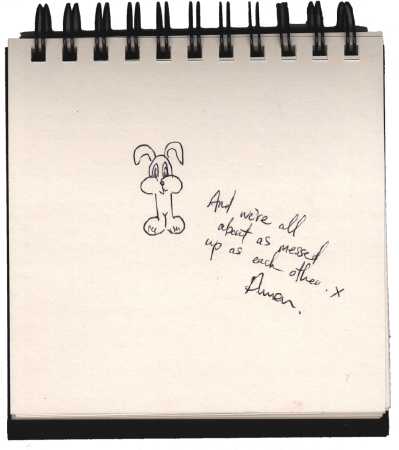 And we're all
about as messed
up as each other. x
Amen.